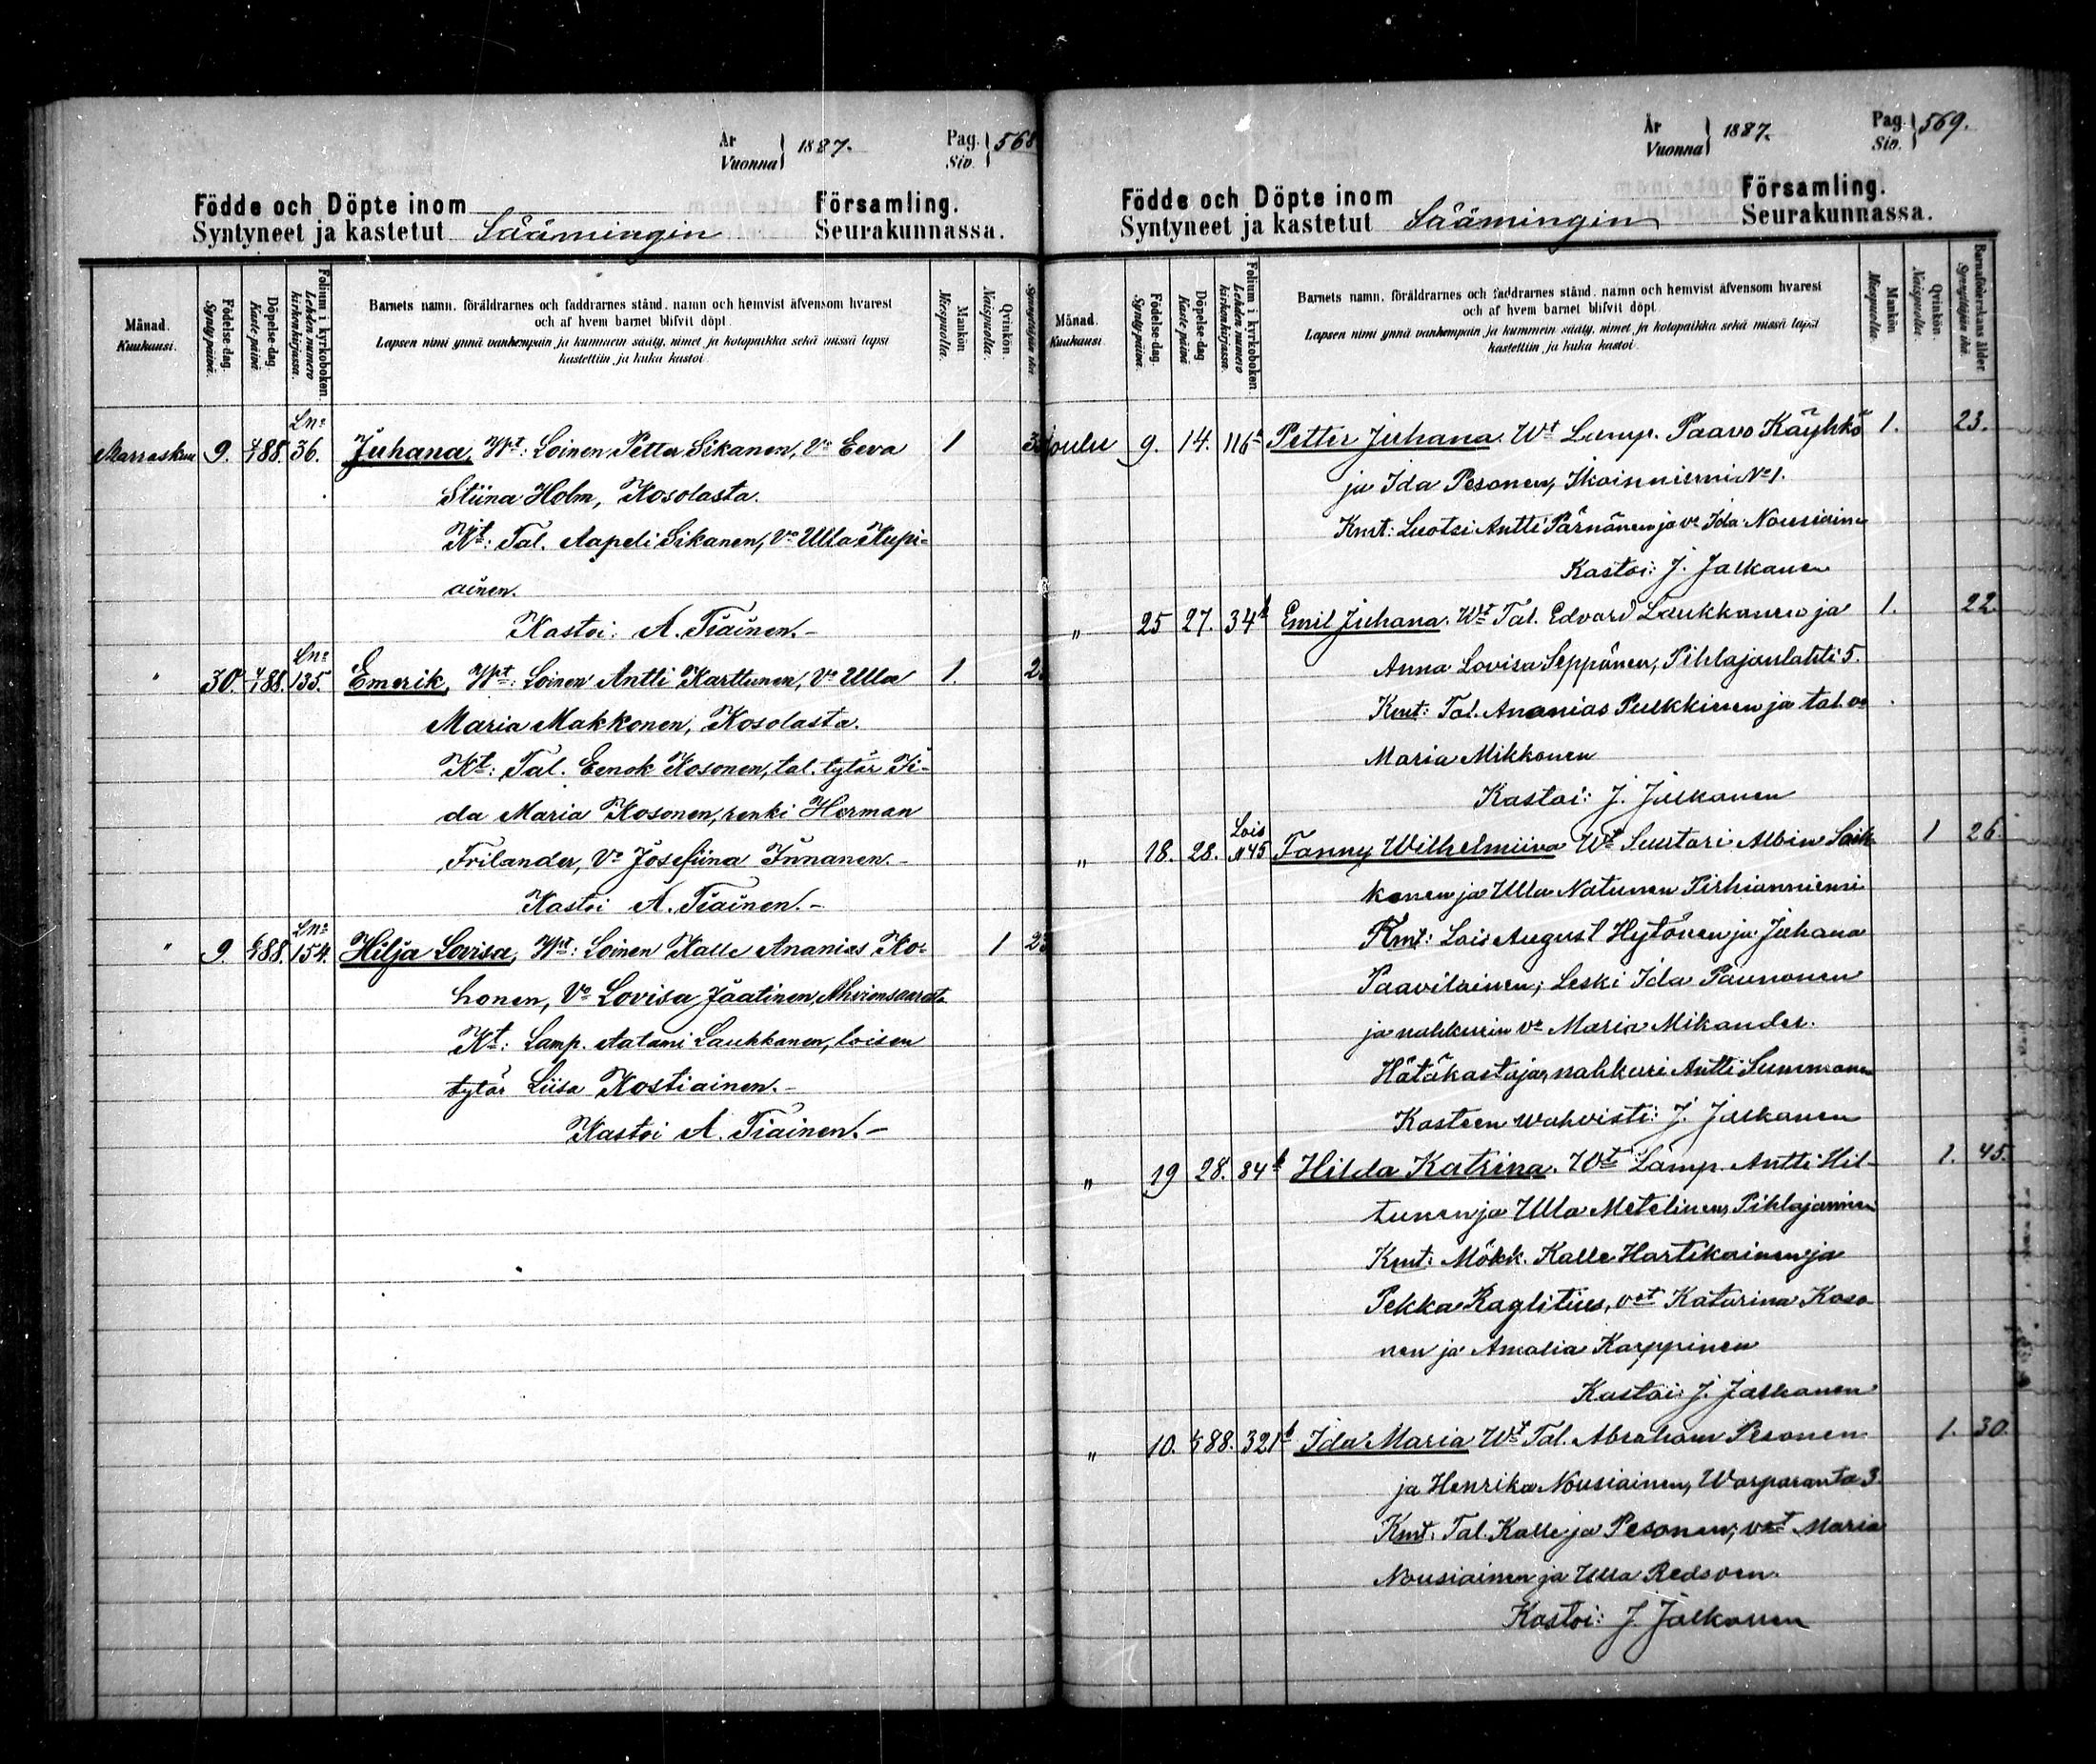 År
Vuonna } 1887.
Pag.
Siv. } 568
Födde och Döpte inom Församling.
Syntyneet ja kastetut Säämingin Seurakunnassa.
Månad. Kuukausi.
Födelse-dag. Syntypäivä.
Döpelse-dag. Kaste-päivä
Folium i kyrkoboken. Lehden numero kirkonkirjassa.
Barnets namn, föräldrarnes och faddrarnes stånd, namn och hemvist äfvensom hvarest
och af hvem barnet blifvit döpt.
Lapsen nimi ynnä vanhempain ja kummein sääty, nimet ja kotopaikka sekä missä lapsi
kastettiin ja kuka kastoi.
Mankön. Miespuolia.
Qvinkön. Naispuolia.
Lno
Marraskuu 9. 88. 36. Juhana, Wmt: Loinen Petter Sikanen, Vo Eeva 1
Stiina Holm, Kosolasta.
Kt: Tal. Aapeli Sikanen, Vo Ulla Kupi-
ainen.
Kastoi: A. Tiainen.-
Lno
" 30. 88. 135. Emerik, Wmt: Loinen Antti Karttunen, Vo Ulla 1.
Maria Makkonen, Kosolasta.
Kt: Tal. Eenok Kosonen, tal. tytär Ii-
da Maria Kosonen, renki Herman
Frilander, Vo Josefiina Innanen.-
Kastoi A. Tiainen.-
Lno
" 9. 88. 154. Hilja Lovisa, Wmt: Loinen Kalle Ananias Ko- 1
honen, Vo Lovisa Jäätinen, Ahvensaarata
Kt: Lamp. Aatami Laukkanen, loisen
tytär Liisa Kostiainen.-
Kastoi A. Tiainen.-
År
Vuonna } 1887.
Pag.
Siv. } 569.
Födde och Döpte inom Församling.
Syntyneet ja kastetut Säämingin Seurakunnassa.
Månad. Kuukausi.
Födelse-dag. Syntypäivä.
Döpelse-dag. Kaste-päivä
Folium i kyrkoboken. Lehden numero kirkonkirjassa.
Barnets namn, föräldrarnes och faddrarnes stånd, namn och hemvist äfvensom hvarest
och af hvem barnet blifvit döpt.
Lapsen nimi ynnä vanhempain ja kummein sääty, nimet ja kotopaikka sekä missä lapsi
kastettiin ja kuka kastoi.
Mankön. Miespuolia.
Qvinkön. Naispuolia.
Barnaföderskans ålder. Synnyttäjän ikä.
Joulu 9. 14. 116 Petter Juhana. Wt Lamp. Paavo Käyhkö 1. 23.
ja Ida Pesonen, Ikoinniemi No 1.
Kmt: Luotsi Antti Pärnänen ja vo Ida Nousiainen
Kastoi: J. Jalkanen
" 25 27. 34 b Emil Juhana. Wt Tal. Edvard Laukkanen ja 1. 22.
Anna Lovisa Seppänen, Pihlajanlahti 5.
Kmt: Tal. Ananias Pulkkinen ja tal. vo
Maria Mikkonen
Kastoi: J. Jalkanen
Lois
" 18. 28. N 45 Fanny Wilhelmiina Wt Suutari Albin Saik- 1 26.
konen ja Ulla Natunen Pirhianniemi
Kmt: Lois August Hytönen ja Juhana
Paavilainen; Leski Ida Paunonen
ja nahkurin vo Maria Mikander.
Hätäkastaja, nahkuri Antti Summanen
Kasteen wahvisti: J. Jalkanen
" 19 28. 84 b Hilda Katrina. Wt Lamp. Antti Hil- 1. 45.
tunen ja Ulla Metelinen, Pihlajaniemi
Kmt: Mökk. Kalle Hartikainen ja
Pekka Raglitius, vot Katarina Koso-
nen ja Amalia Karppinen
Kastoi: J. Jalkanen
" 10. 88. 321 b Ida Maria Wt Tal. Abraham Pesonen 1. 30.
ja Henrika Nousiainen, Warparanta 3.
Kmt: Tal. Kalle ja Pesonen; vot Maria
Nousiainen ja Ulla Redsven
Kastoi: J. Jalkanen